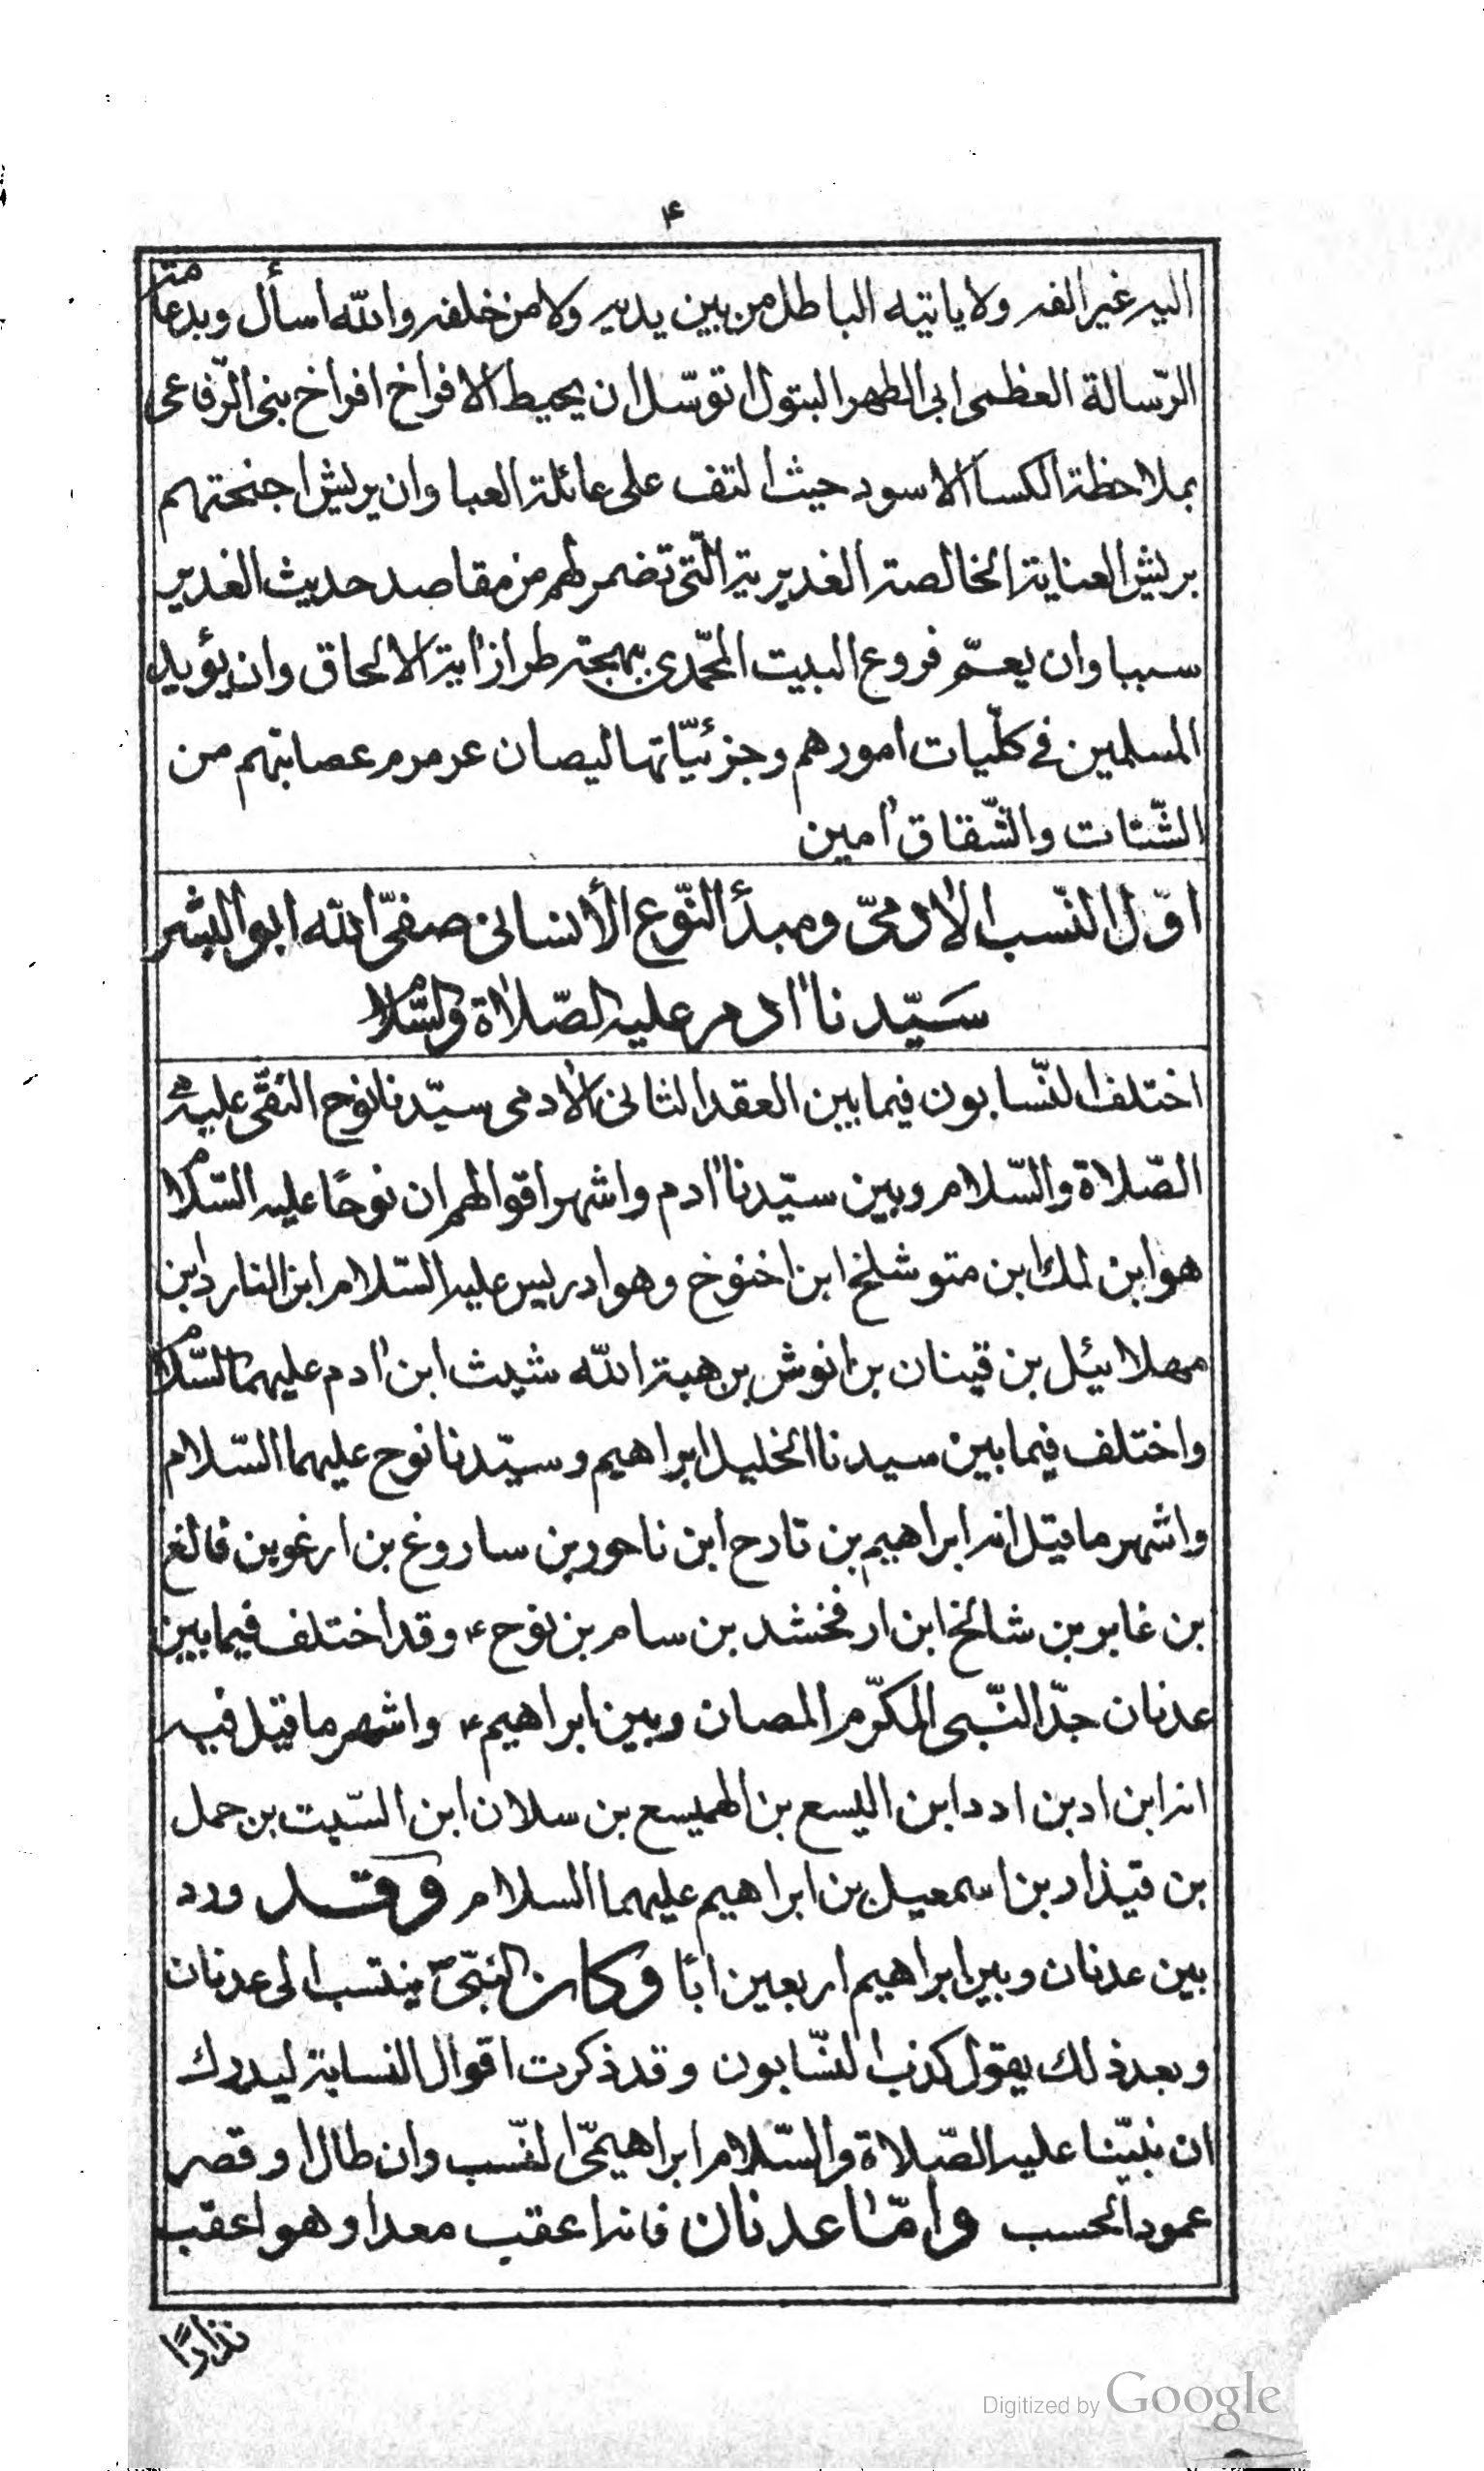 ۴
اليه غير الفه ولا ياتيه الباطل من بين يديه ولا من خلفه والله اسأل وبدعامة
الرّسالة العظمى ابى الطهر البتول اتوسّل ان يحيط الافراخ افراخ بنى الرّفاعى
بملاحظة الكساء الاسود حيث التف على عائلة العبا وان يريش اجنحتهم
بريش العناية الخالصة الغديرية الّتى تضمر لهم من مقاصد حديث الغدير
سببا وان يعمّ فروع البيت المحمّدى ببهجة طراز اٰية الالحاق وان يؤيد
المسلمين فى كلّيات امورهم وجزئيّاتها ليصان عرمرم عصابتهم من
الشّتات والشّقاق اٰمين
اوّل النّسب الاٰدمىّ ومبدأ النّوع الأنسانى صفىّ الله ابو البشر
سَيّدنا اٰدم عليه الصّلاة والسّلام
اختلف النّسابون فيما بين العقد الثانى الاٰدمى سيّدنا نوح النقّى عليه
الصّلاة والسّلام وبين سيّدنا اٰدم واشهر اقوالهم ان نوحًا عليه السّلام
هو ابن لمك ابن متوشلخ ابن اخنوخ وهو ادريس عليه السّلام ابن النارد ابن
مهلائيل بن قينان بن انوش بن هبة الله شيث ابن اٰدم عليهما السّلام
واختلف فيما بين سيدنا الخليل ابراهيم وسيّدنا نوح عليهما السّلام
واشهر ما قيل انه ابراهيم بن تارح ابن ناحور بن ساروغ بن ارغو بن فالغ
بن غابر بن شالخ ابن ارفخشد بن سام بن نوح ء وقد اختلف فيما بين
عدنان جدّ النّبى المكرّم المصان وبين ابراهيم ء واشهر ما قيل فيه
انه ابن اد بن ادد ابن اليسع بن الهميسع بن سلان ابن السّبت بن حمل
بن قيذار بن اسمعيل بن ابراهيم عليهما السلام وقد ورد
بين عدنان وبين ابراهيم اربعين ابًا وكان النبىّ ينتسب الى عدنان
وبعد ذلك يقول كذب النسّابون وقد ذكرت اقوال النسابة ليدرك
ان نبيّنا عليه الصّلاة والسّلام ابراهيمىّ النّسب وان طال او قصر
عمود الحسب وامّا عدنان فانه اعقب معدا وهو اعقب
نزارًا
Digitized by Google